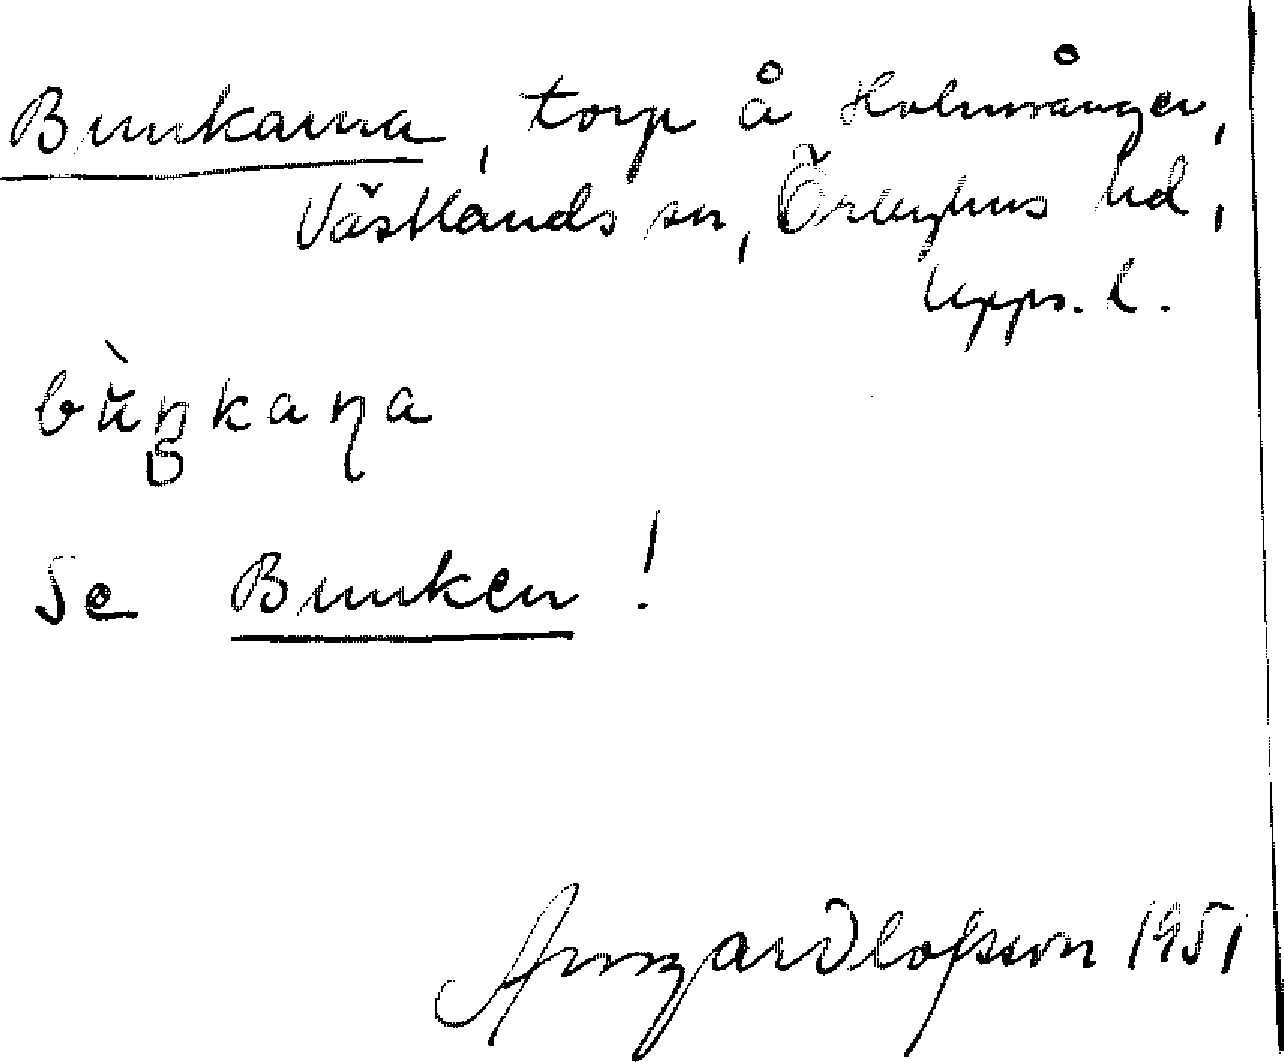 Bunkarna, torp å Holmånger,
Västlands sn, Örbyhus hd,
Upps. l.
bùŋkaɳa
Se Bunken!
Armgard Olofsson 1951